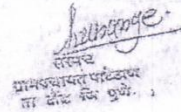 सरपंच
ग्रामपंचायत पाटेठाण
ता दौंड जि पुणे.